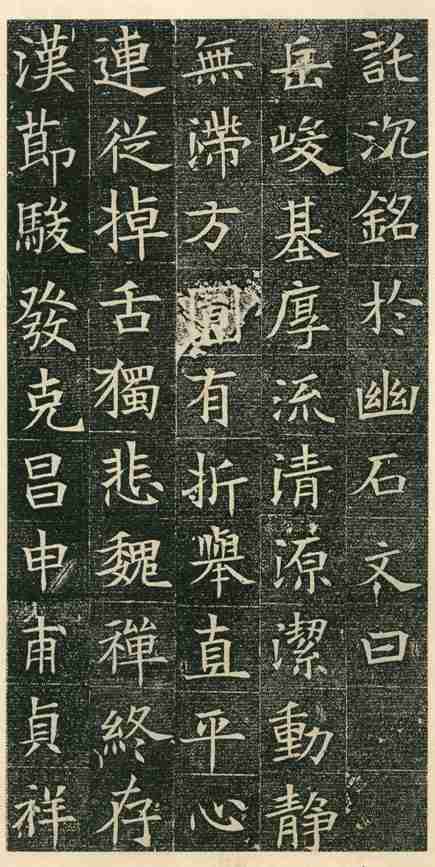 託沉銘於幽石文曰
岳峻基厚流清源潔動静
無滯方圓有折舉直平心
連從掉舌獨悲魏禪終存
漢節駿發克昌申甫貞祥